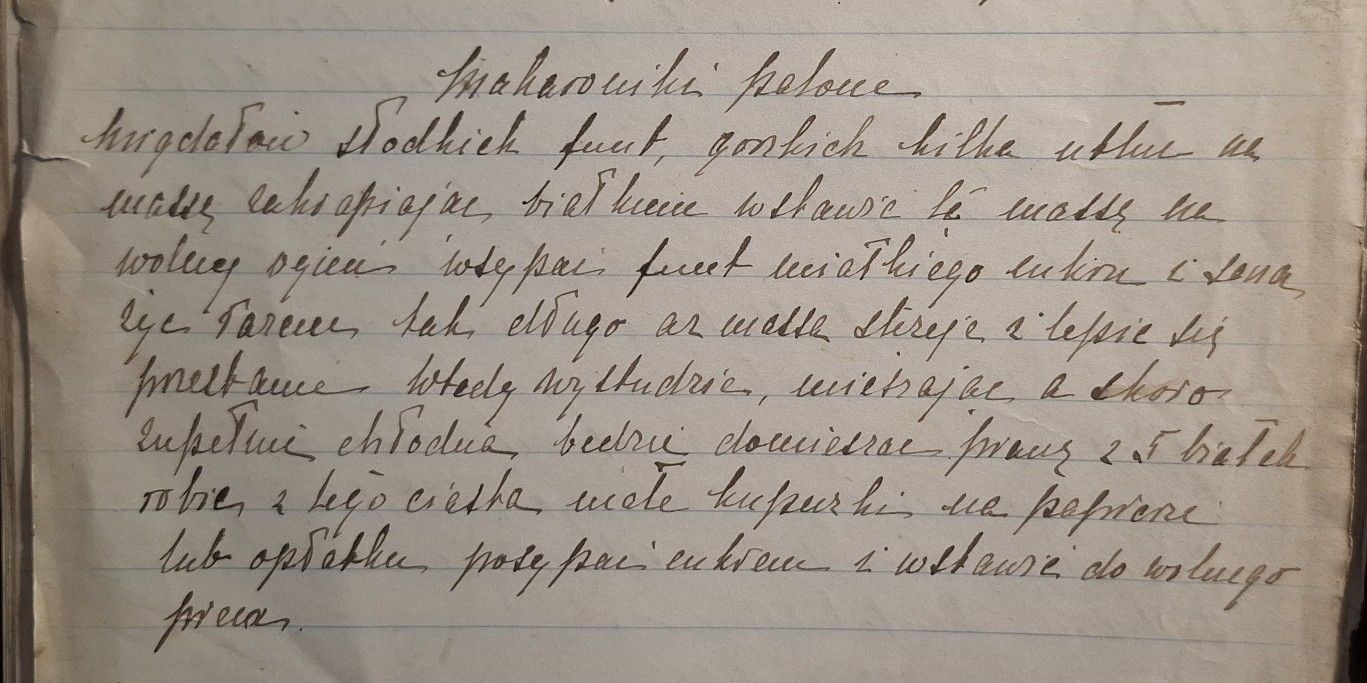 Makaroniki palone
Migdałów słodkich funt, gorzkich kilka utłuc na
massę zakrapiając białkiem wstawić tę massę na
wolny ogień wsypać funt miałkiego cukru i sma
żyć razem tak długo aż massa stęzeje i lepić się
przestanie wtedy wystudzić, mieszając a skoro
zupełnie chłodna będzie domieszać pianę z 5 białek
robić z tego ciasta małe kupeczki na papierze
lub opłatku posypać cukrem i wstawić do wolnego
pieca.